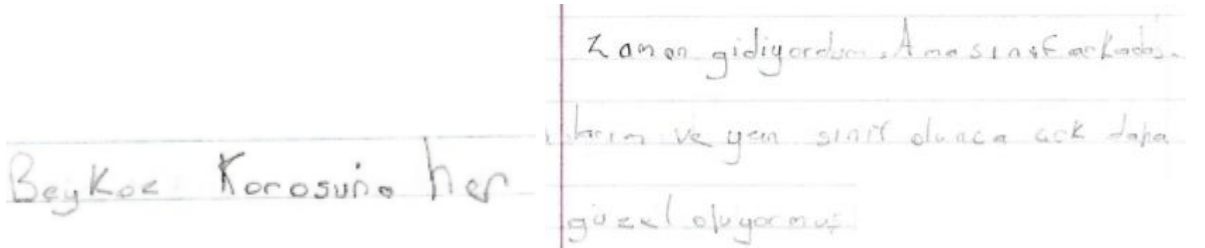 Beykoz Korosuna her
zaman gidiyordum. Ama sınıf arkadaş-
larım ve yen sınıf olunca çok daha
güzel oluyormuş